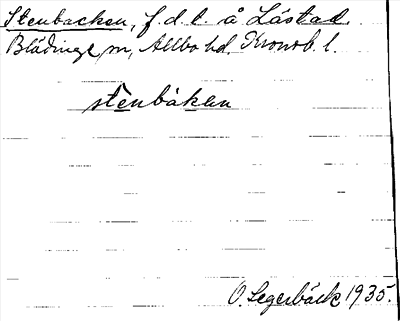 Stenbacken, f. d. l. å Låstad.
Blädinge sn, Allbo hd. Kronob. l.
stènbákən
O. Segerbäck 1935.